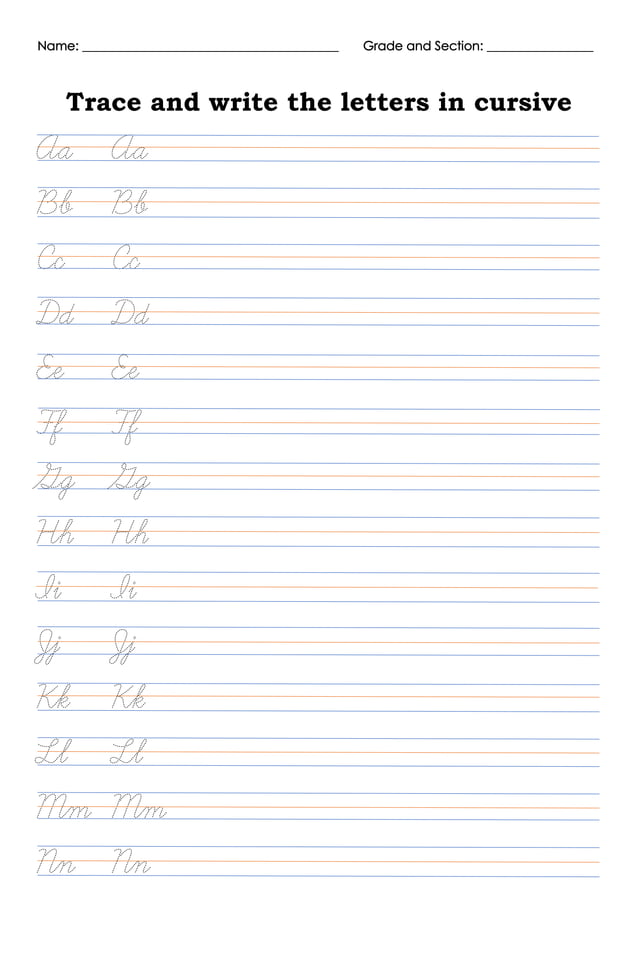 Name: ______________________________________ Grade and Section: ________________
Trace and write the letters in cursive
Aa Aa
Bb Bb
Cc Cc
Dd Dd
Ee Ee
Ff Ff
Gg Gg
Hh Hh
Ii Ii
Jj Jj
Kk Kk
Ll Ll
Mm Mm
Nn Nn